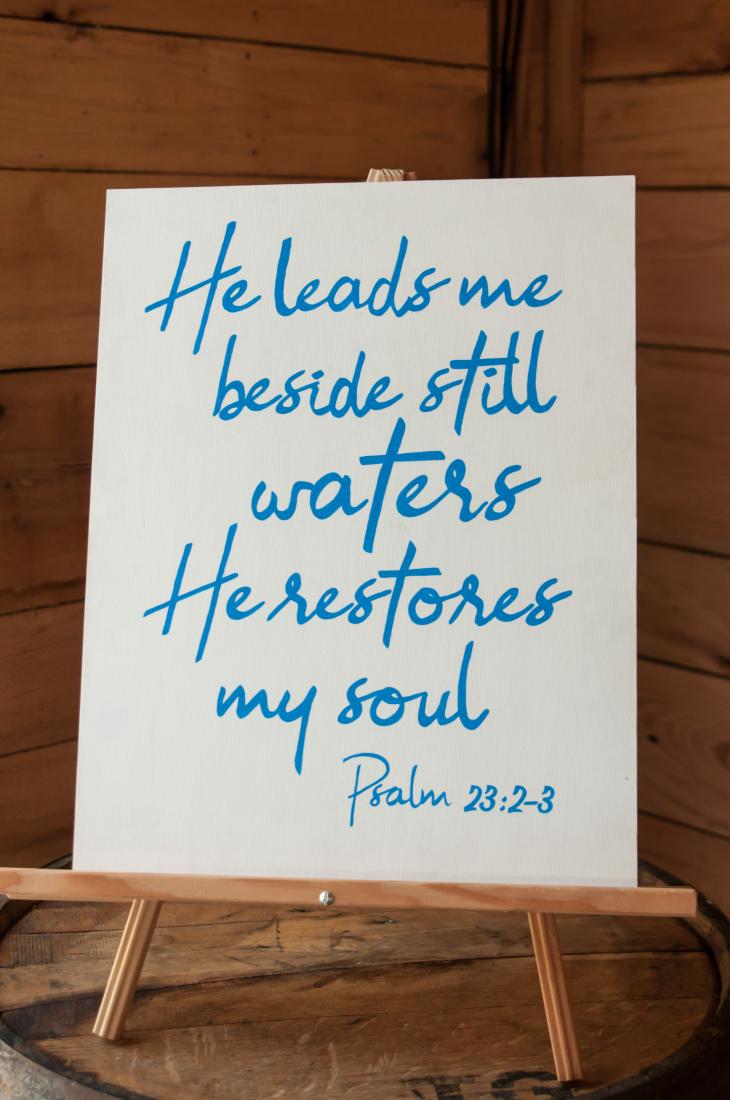 He leads me
beside still
waters
He restores
my soul
Psalm 23:2-3